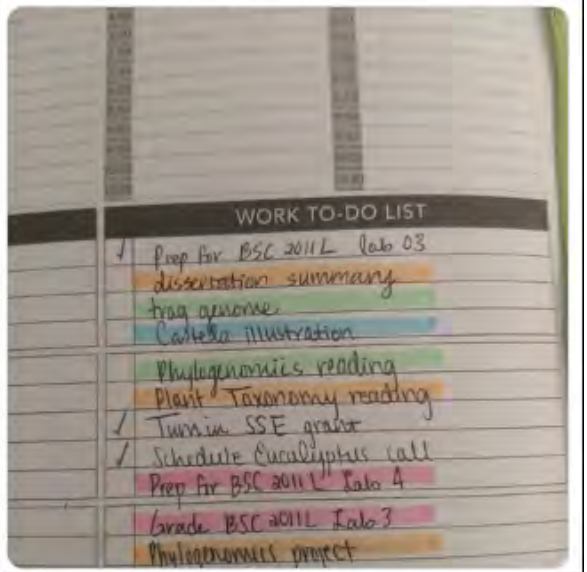 WORK TO-DO LIST
Prep for BSC 2011L lab 03
dissertation summary
frag genome
illustration
Phylogenomics reading
Plant Taxonomy reading
Turn in SSE grant
Schedule Eucalyptus call
Prep for BSC 2011L Lab 4
Grade BSC 2011L Lab 3
Phylogenomics project